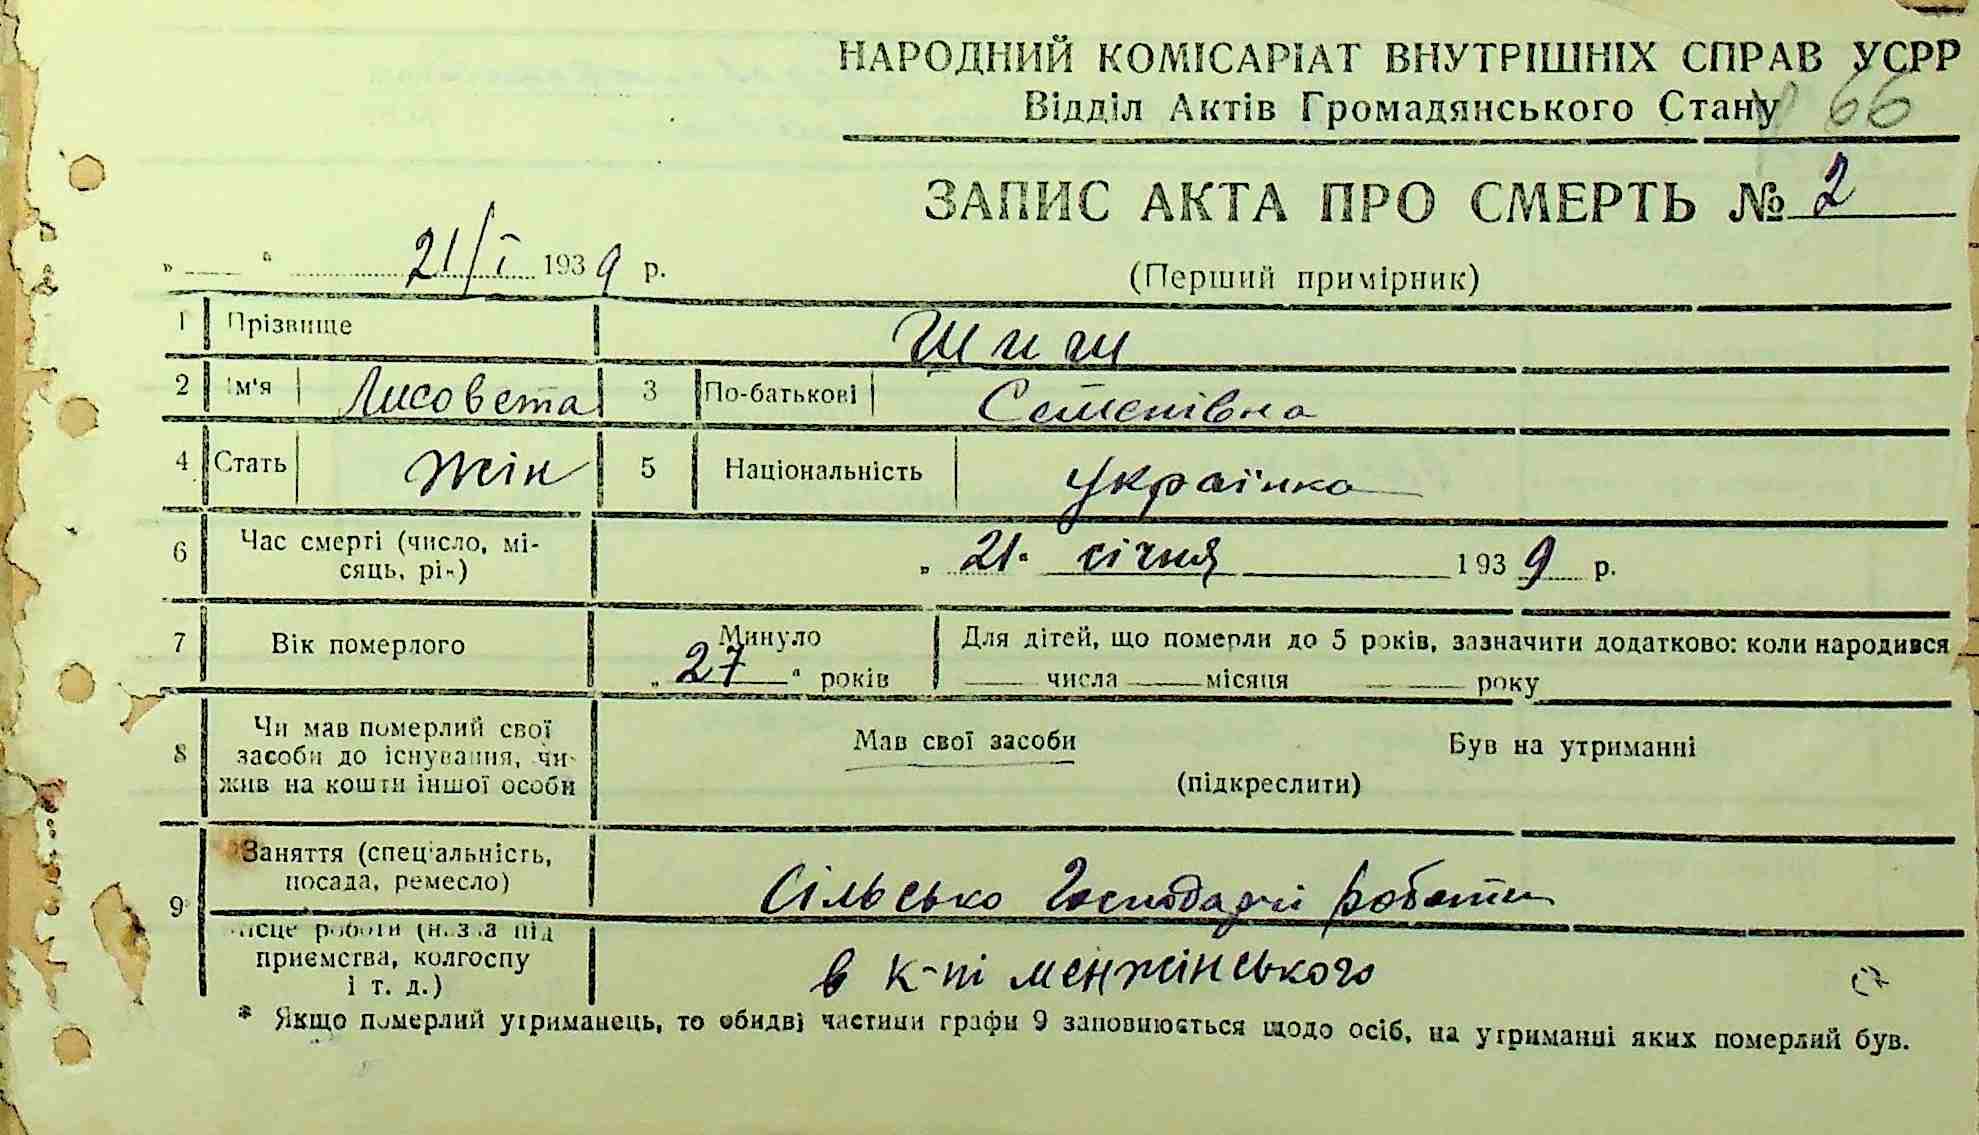 НАРОДНИЙ КОМІСАРІАТ ВНУТРІШНІХ СПРАВ УСРР
Відділ Актів Громадянського Стану 66
ЗАПИС АКТА ПРО СМЕРТЬ № 2
„ “ 21/I 1939 р.
(Перший примірник)
1 Прізвище Шиш
2 Ім'я Лисовета 3 По-батькові Семенівна
4 Стать жін 5 Національність українка
6 Час смерті (число, мі-
сяць, рік) „ 21“ січня 1939 р.
7 Вік померлого Минуло „ 27 “ років
Для дітей, що померли до 5 років, зазначити додатково: коли народився
числа місяця року
8 Чи мав померлий свої
засоби до існування, чи
жив на кошти іншої особи
Мав свої засоби Був на утриманні
(підкреслити)
9 Заняття (спеціальність,
посада, ремесло) Сільсько господарчі роботи
Місце роботи (назва під
приємства, колгоспу
і т. д.) в к-пі менжінського
* Якщо померлий утриманець, то обидві частини графи 9 заповнюється щодо осіб, на утриманні яких померлий був.